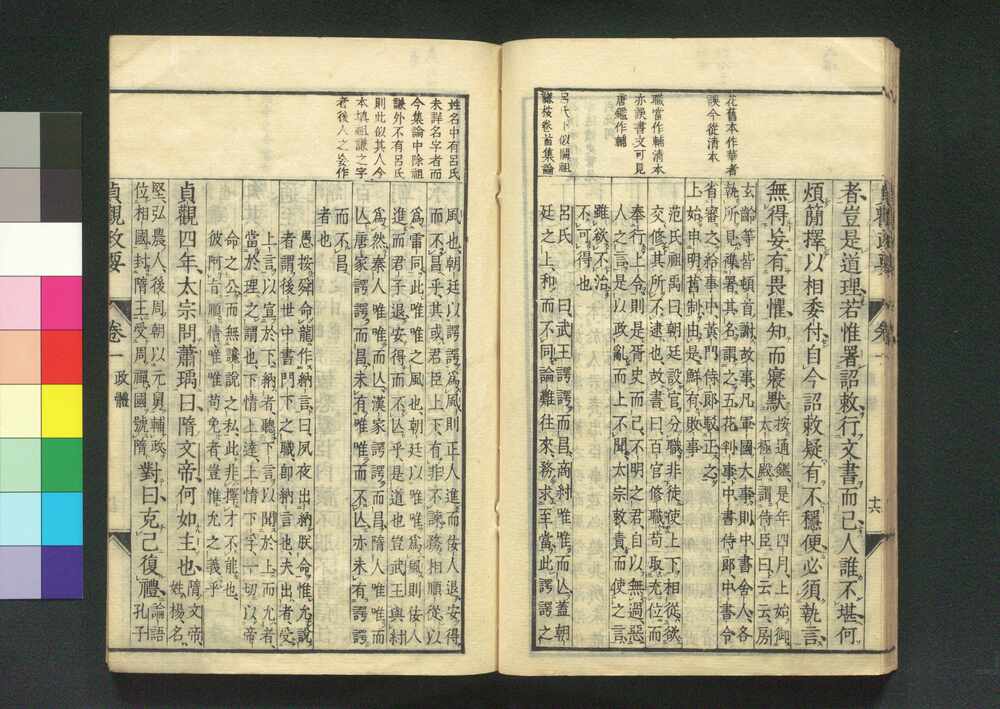 花舊本作華者
誤今從清本
職當作輔清本
亦誤書文可見
唐鑑作輔
呂氏上似闕祖
謙按卷首集論
者、豈是道理、若惟署詔敕、行文書而已、人誰不堪、何
煩簡擇以相委付、自今詔敕疑有不穩便、必須執言、
無得妄有畏懼、知而寢默、
按通鑑、是年四月、上始御
太極殿、謂侍臣曰云云、房
玄齡等皆頓首謝、故事、凡軍國大事、則中書舍人、各
執所見、襍署其名、謂之五花判事、中書侍郎中書令
省審之、給事中、黃門侍郎、駁正之、
上始申明舊制、由是鮮有敗事、
范氏祖禹曰、朝廷設官分職、非徒使上下相從、欲
交修其所不逮也、故書曰、百官修職、苟取充位、而
奉行上令、則是胥史而已、不明之君、自以無過、惡
人之言、是以政亂而上不聞、太宗敎責而使之言、
雖欲不治、
不可得也
呂氏 曰、武王諤諤而昌、商紂唯唯而亾、蓋朝
廷之上、和而不同、論難往來、務求至當、此諤諤之
十六
姓名中有呂氏
未詳名字者而
今集論中除祖
謙外不有呂氏
則此似其人今
本塡祖謙之字
者後人之妄作
風也、朝廷以諤諤爲風、則正人進、而佞人退、安得
而不昌乎、其或君臣上下、有非不諫、務相順從、以
爲雷同、此唯唯之風也、朝廷以唯唯爲風、則佞人
進、而君子退、安得而不亾乎、是道也、豈武王與紂
爲然、秦人唯唯、而亾、漢家諤諤、而昌、隋人唯唯、而
亾、唐家諤諤、而昌、未有唯唯、而不亾、亦未有諤諤
而不昌
者也
愚按、舜命龍作納言、曰、夙夜出納朕命、惟允、說
者謂、後世中書門下之職、即納言也、夫出者、受
上言、以宣於下、納者、聽下言、以聞於上、而允者、
當於理之謂也、下情上達、上情下孚、一切以帝
命之公、而無讒說之私、此非擇才不能也、
彼阿旨順情、唯唯苟免者、豈惟允之義乎
貞觀四年、太宗問蕭瑀曰、隋文帝、何如主也、
隋文帝、
姓楊名
堅、弘農人、後周朝、以元舅輔政、
位相國、封隋王、受周禪、國號隋
對曰、克己復禮、
論語
孔子
貞觀政要
卷一
政體